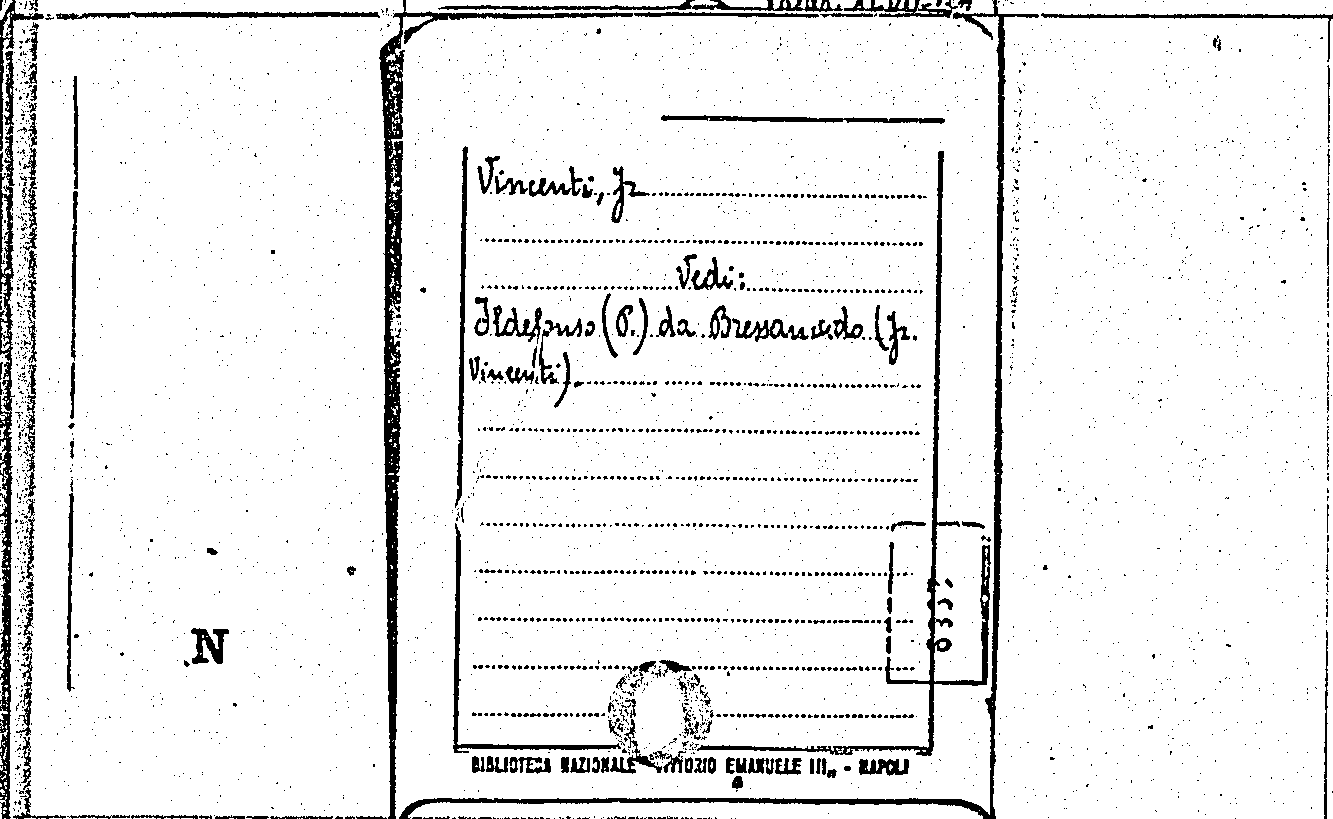 Vincenti, Jr
Vedi:
Ildefonso (P.) da Bressanvido (Jr.
Vincenti).
N
BIBLIOTECA NAZIONALE VITTORIO EMANUELE III„ - NAPOLI